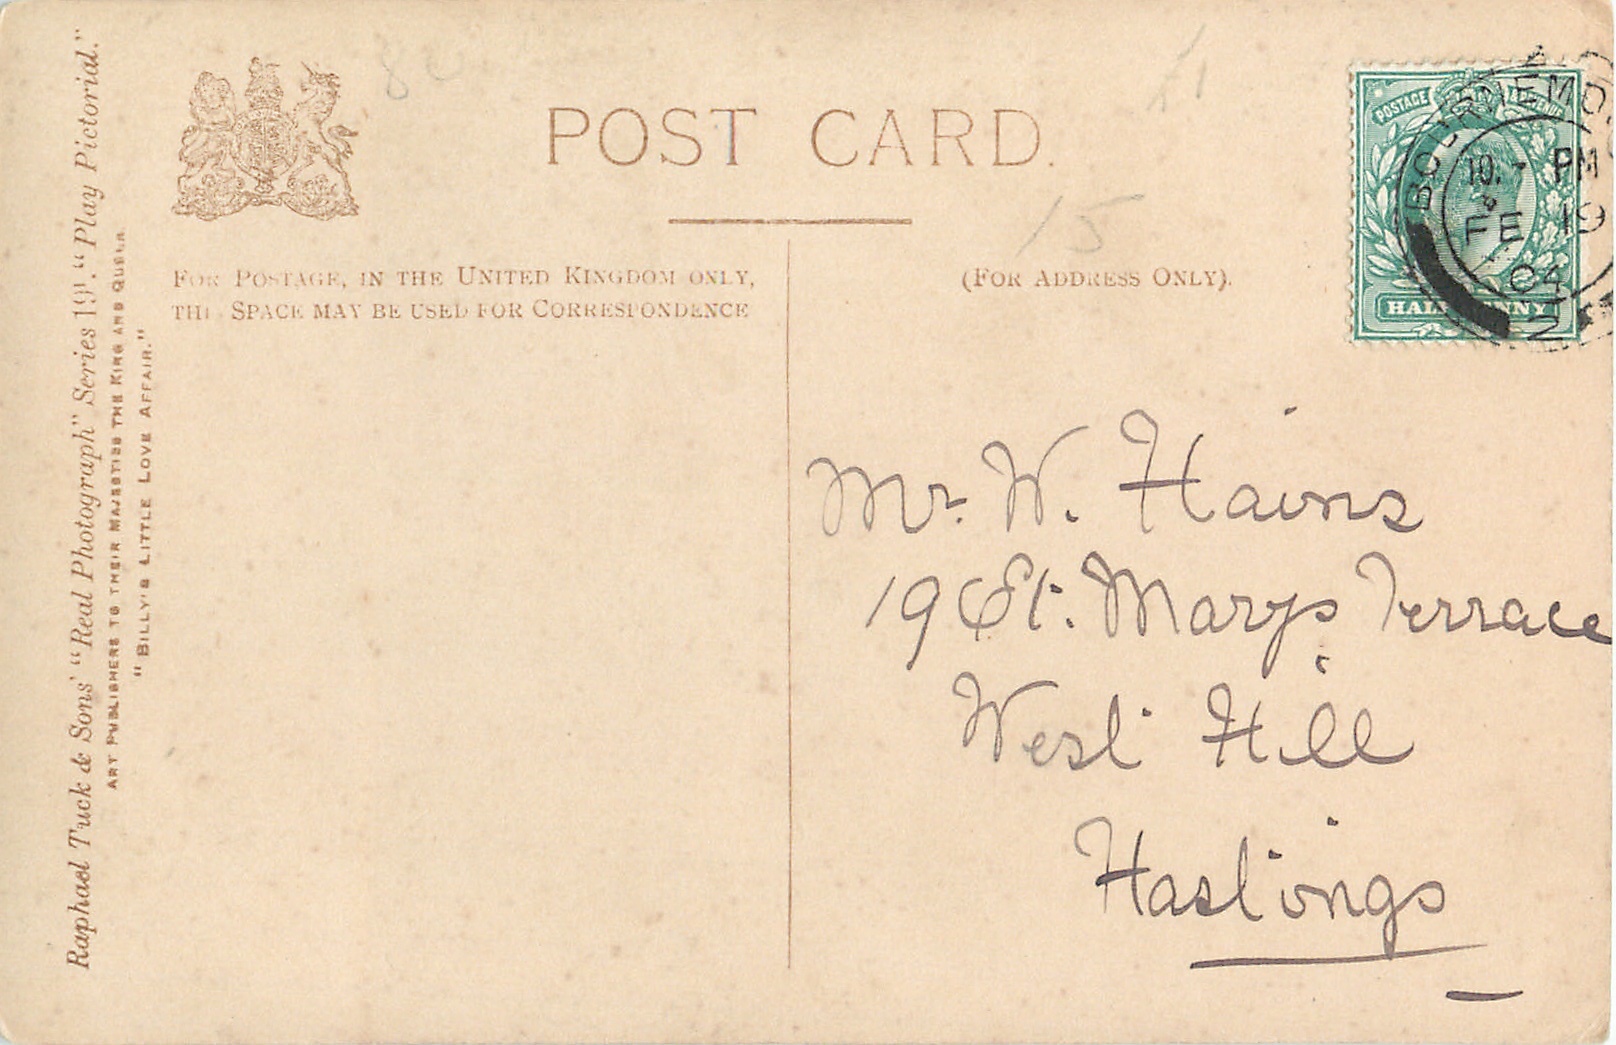 Raphael Tuck & Sons' "Real Photograph" Series 191. "Play Pictorial."
ART PUBLISHERS TO THEIR MAJESTIES THE KING AND QUEEN.
"BILLY'S LITTLE LOVE AFFAIR."
POST CARD.
FOR POSTAGE, IN THE UNITED KINGDOM ONLY,
THIS SPACE MAY BE USED FOR CORRESPONDENCE
(FOR ADDRESS ONLY).
15
POSTAGE
HALFPENNY
BOURNEMO
10. - PM
FE 19
04
Mr. W. Hains
19 St. Marys Terrace
West Hill
Hastings